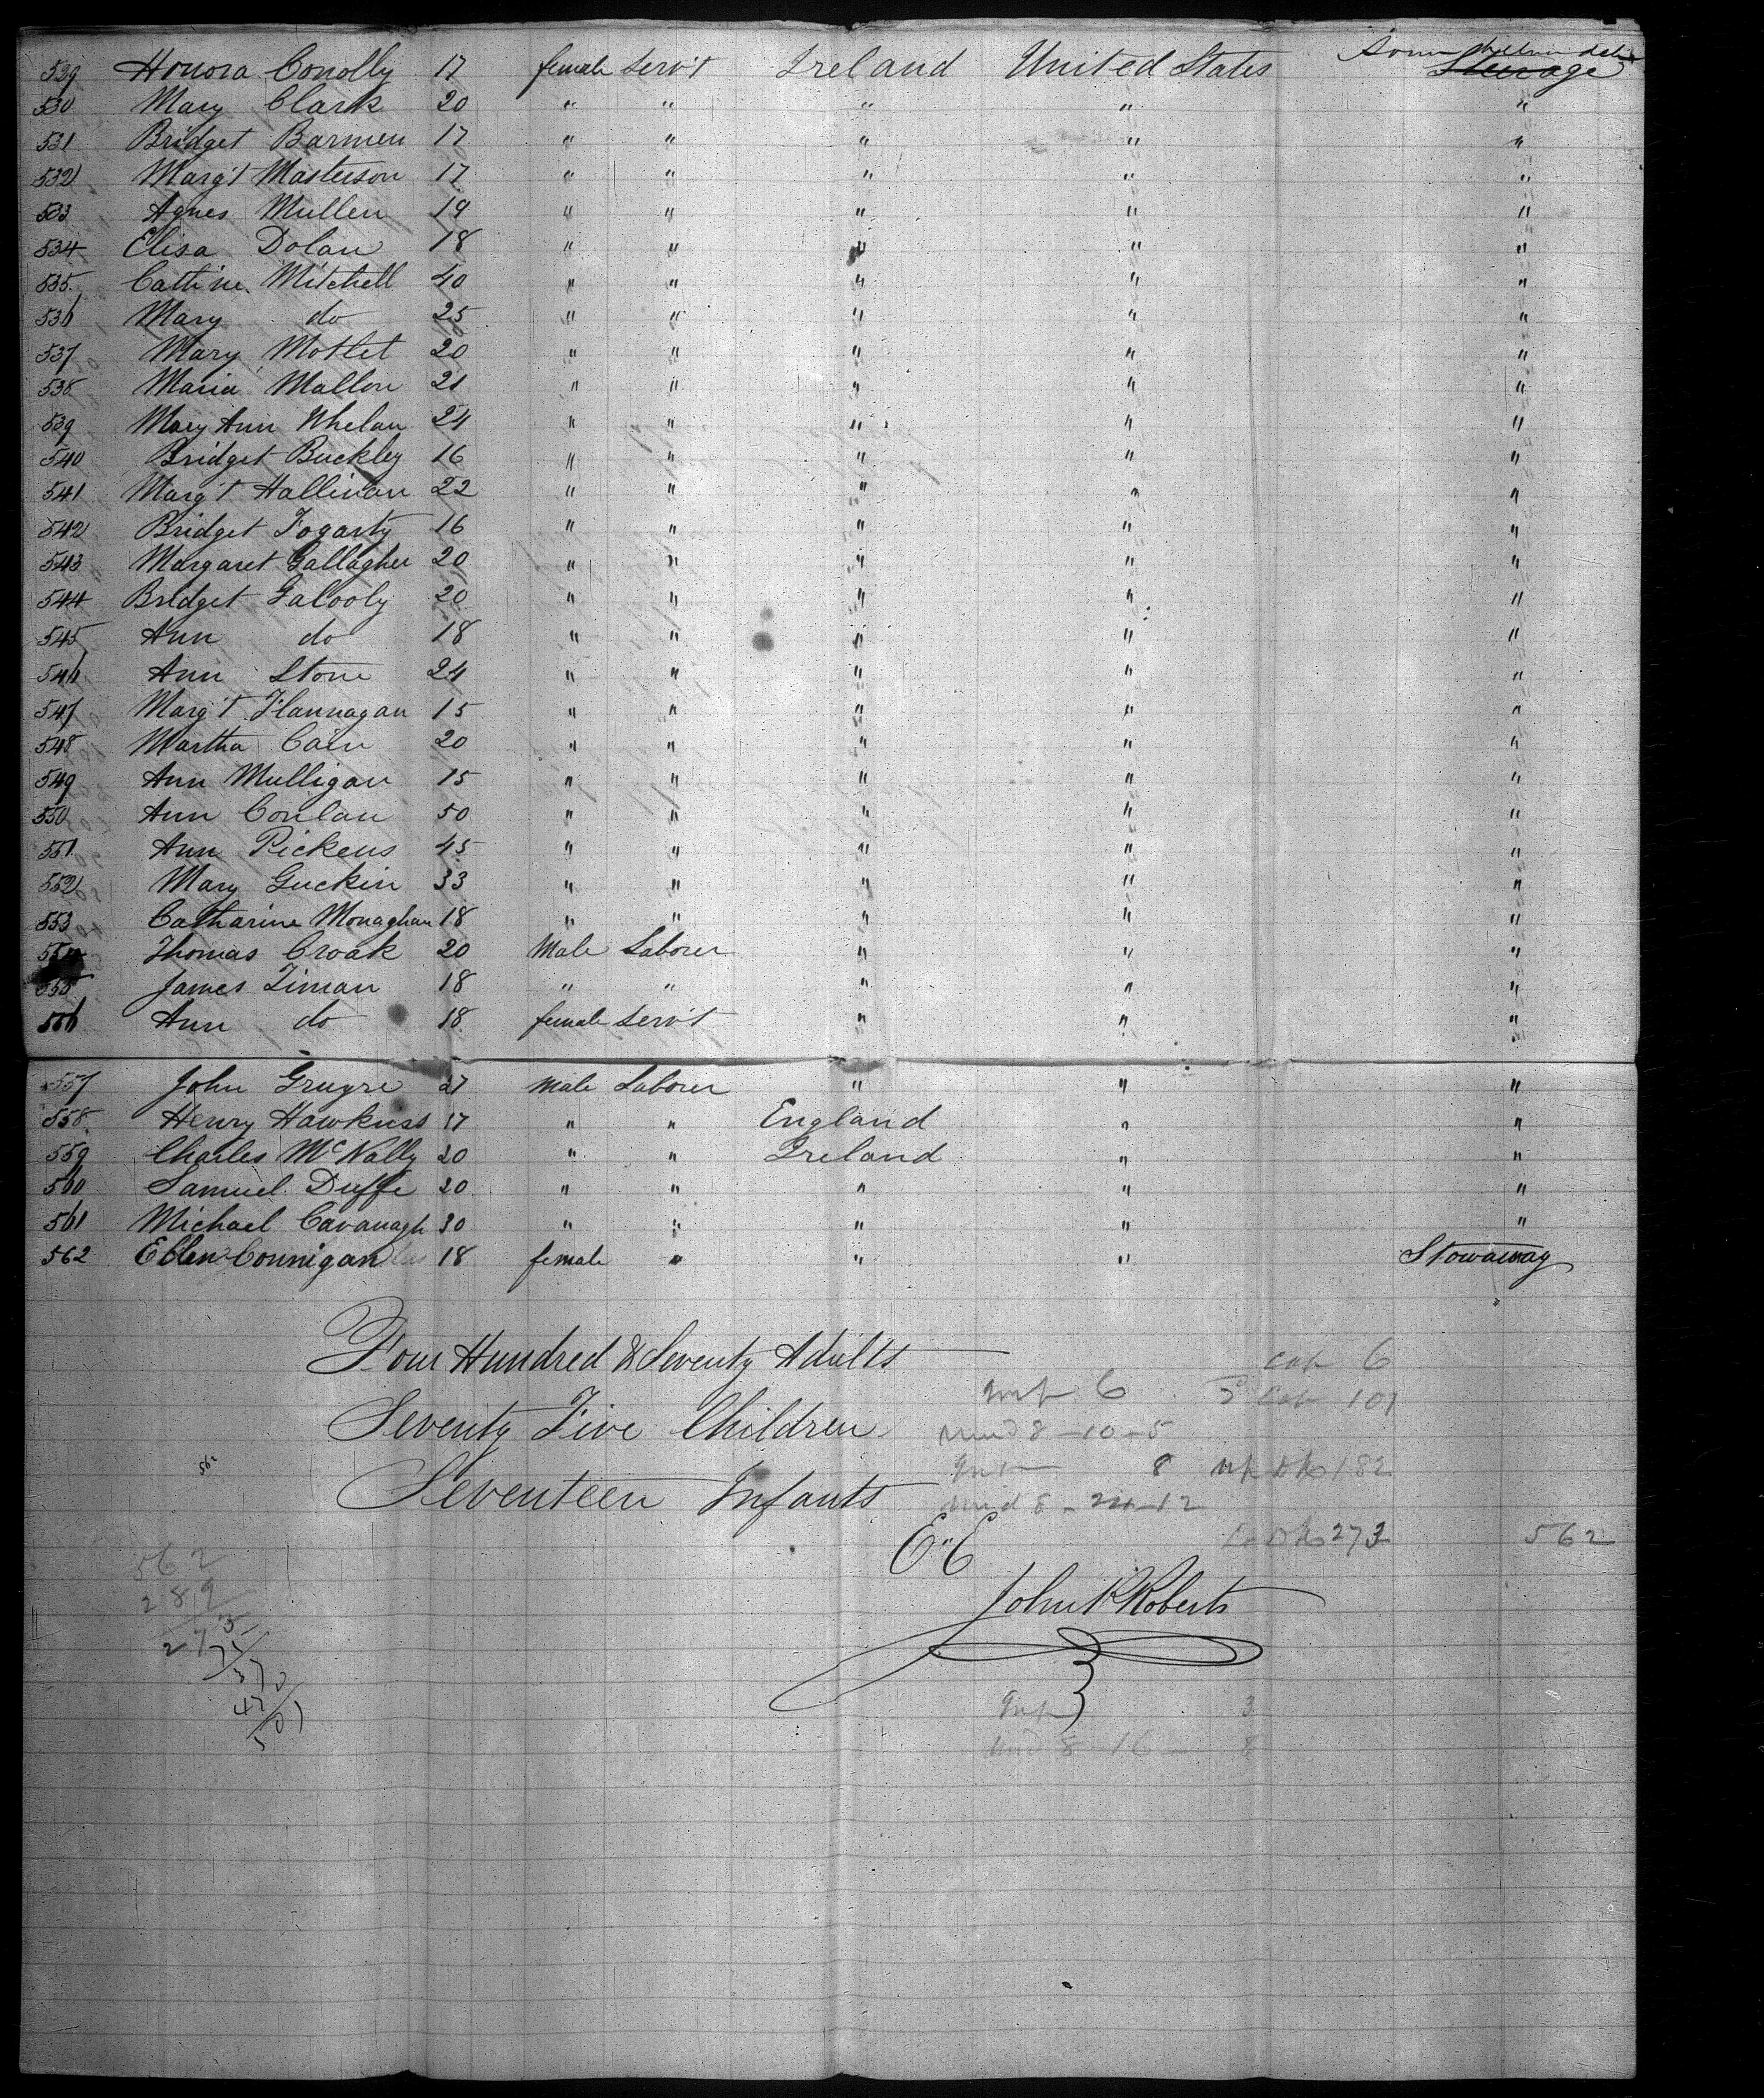 529 Honora Conolly 17 female Serv't Ireland United States Steerage
530 Mary Clark 20 " " " " "
531 Bridget Barmen 17 " " " " "
532 Marg't Masterson 17 " " " " "
533 Agnes Mullen 19 " " " " "
534 Elisa Dolan 18 " " " " "
535 Cath'ine Mitchell 40 " " " " "
536 Mary do 25 " " " " "
537 Mary Mottet 20 " " " " "
538 Maria Mallon 21 " " " " "
539 Mary Ann Whelan 24 " " " " "
540 Bridget Buckley 16 " " " " "
541 Marg't Hallinan 22 " " " " "
542 Bridget Fogarty 16 " " " " "
543 Margaret Gallagher 20 " " " " "
544 Bridget Galooly 20 " " " " "
545 Ann do 18 " " " " "
546 Ann Stone 24 " " " " "
547 Marg't Flannagan 15 " " " " "
548 Martha Cain 20 " " " " "
549 Ann Mulligan 15 " " " " "
550 Ann Conlan 50 " " " " "
551 Ann Pickens 45 " " " " "
552 Mary Guckin 33 " " " " "
553 Catharine Monaghan 18 " " " " "
554 Thomas Croak 20 Male Laborer " " "
555 James Timan 18 " " " " "
556 Ann do 18 female Serv't " " "
557 John Gruyre 27 Male Laborer " " "
558 Henry Hawkness 17 " " England " "
559 Charles McNally 20 " " Ireland " "
560 Samuel Duffe 20 " " " " "
561 Michael Cavanagh 30 " " " " "
562 Ellen Connigan 18 female " " " Stowaway
Four Hundred & Seventy Adults
6
6
101
Seventy Five Children
8 - 10 - 5
562
8
182
Seventeen Infants
8 - 24 - 12
E"E
273
562
562
289
273
John K Roberts
3
8 - 16 - 8